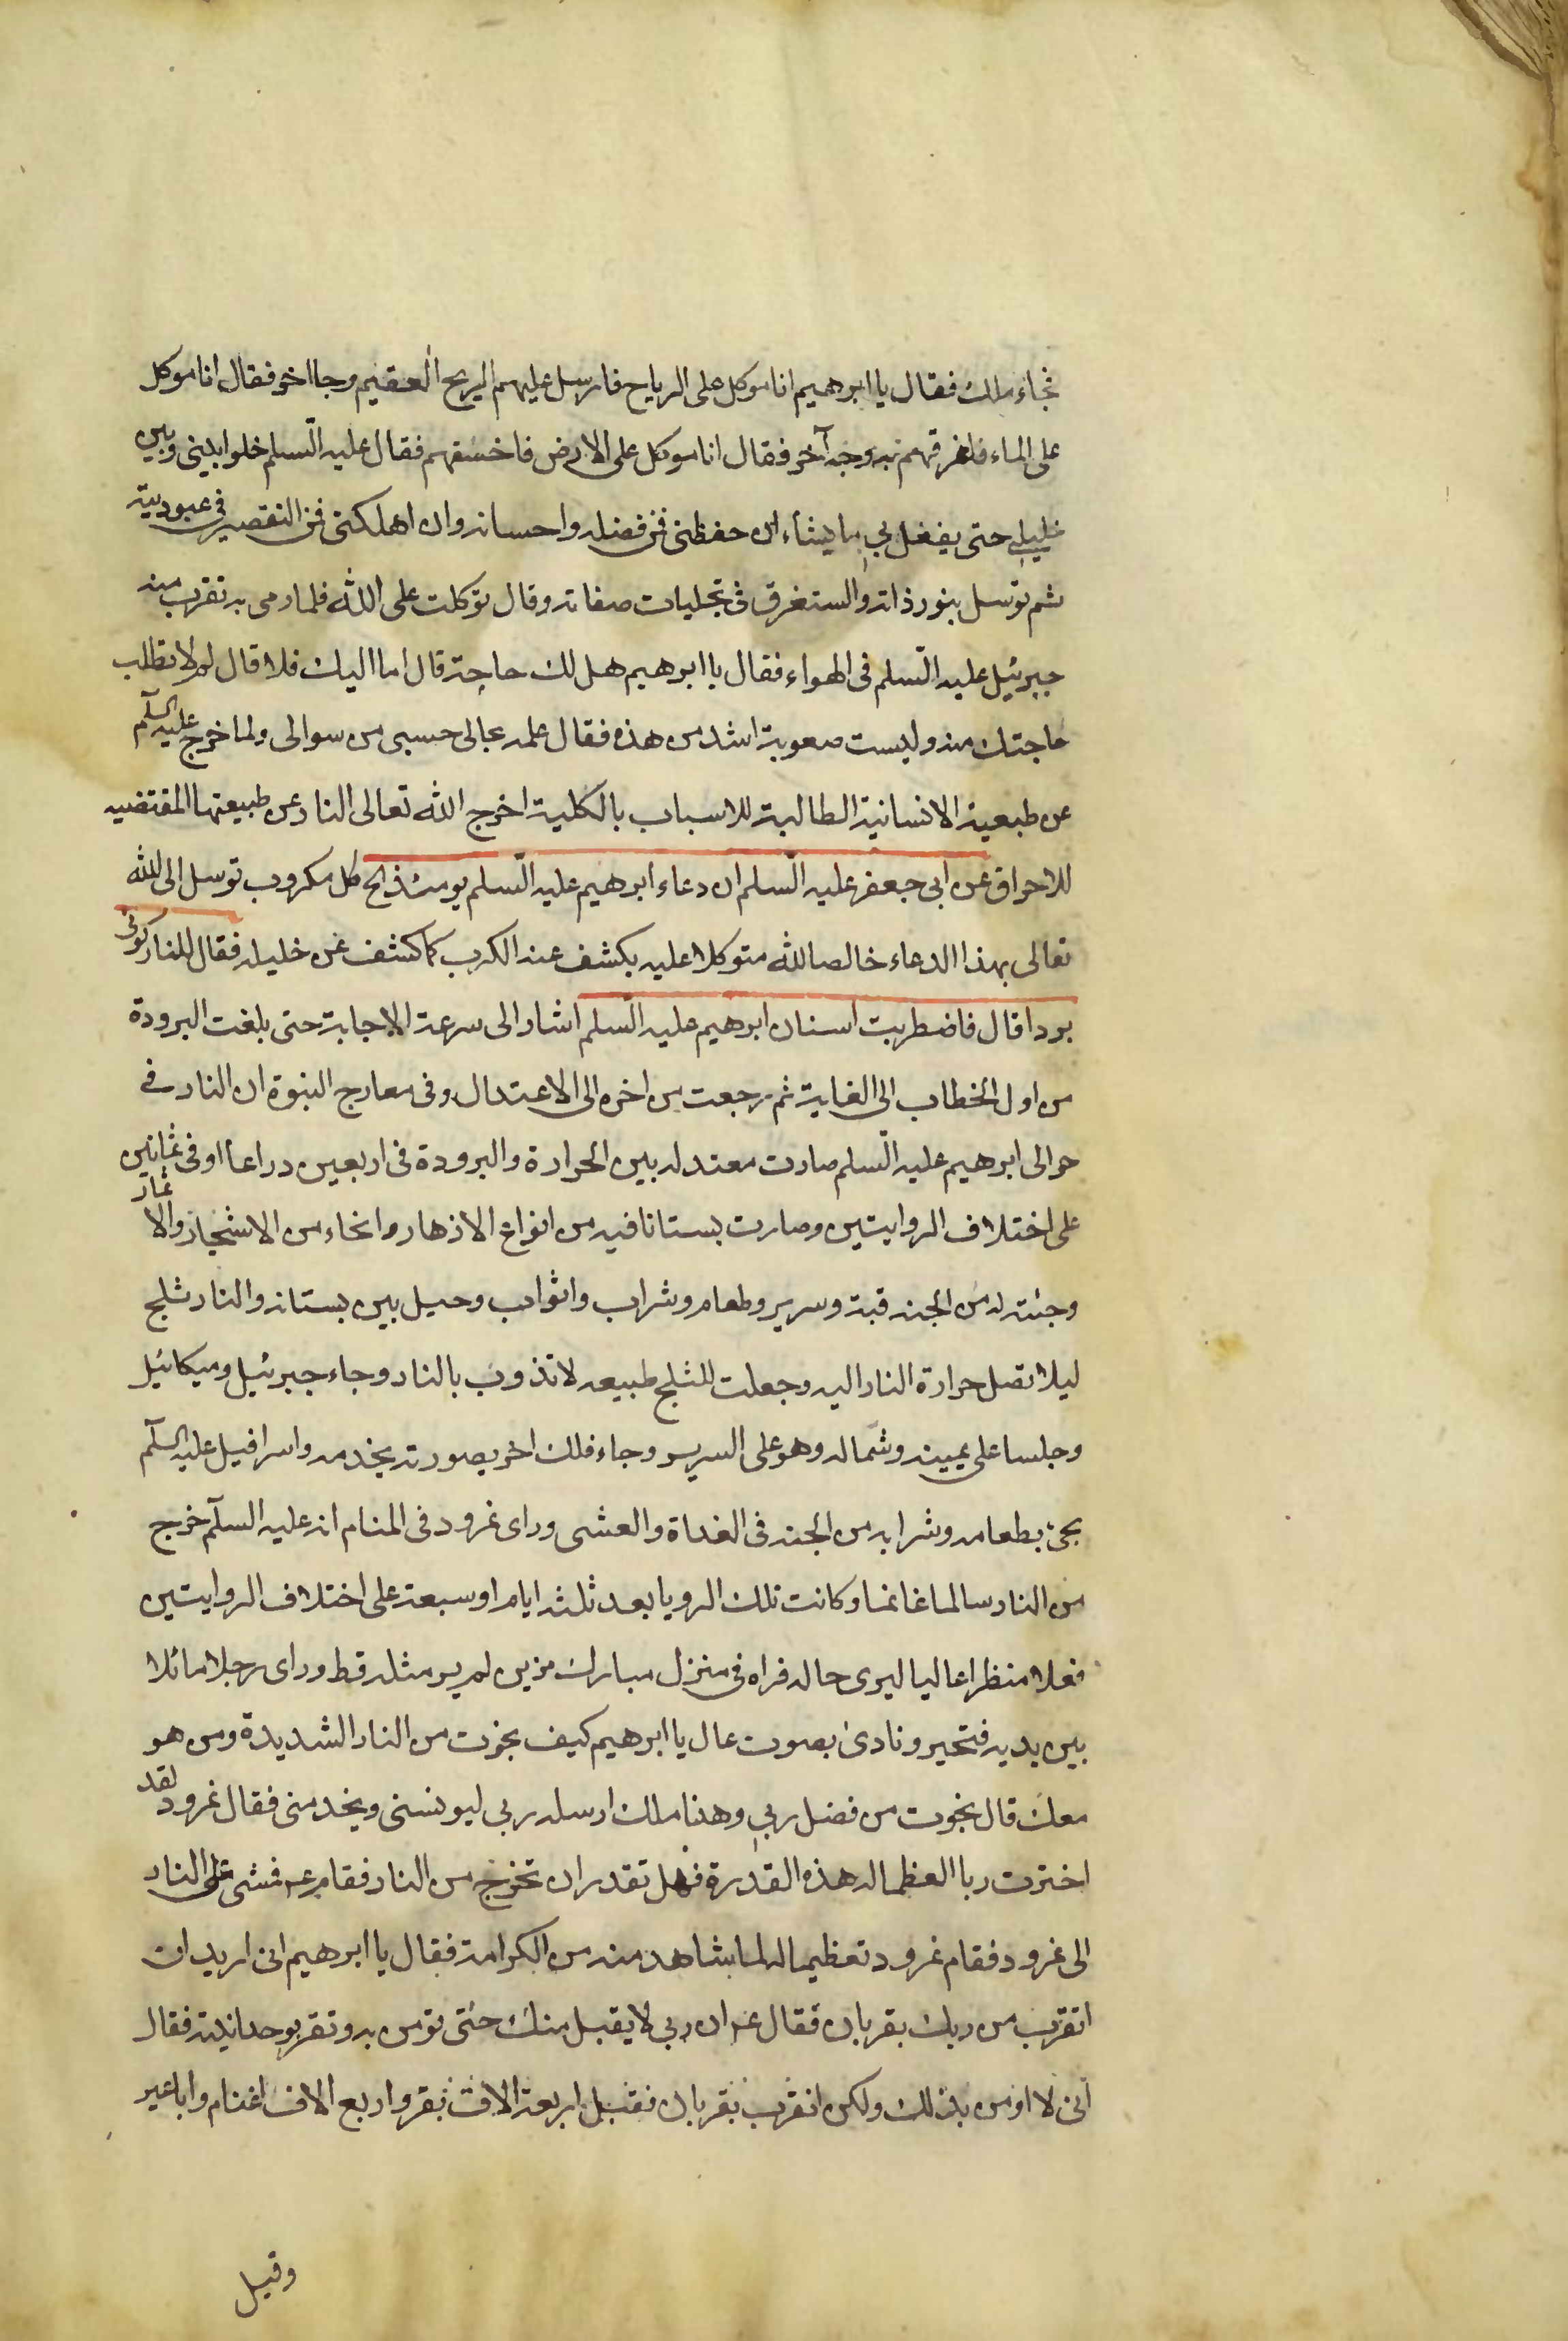 فجاء ملك فقال يا ابرهيم انا موكل على الرياح فارسل عليهم الريح العقيم وجا اخر فقال انا موكل
على الماء فاغرقهم به وجاء آخر فقال انا موكل على الارض فاخسفهم فقال عليه السلم خلوا بيني وبين
خليلي حتى يفعل بي ما يشاء ان حفظني فمن فضله واحسانه وان اهلكني فمن التقصير في عبوديته
ثم توسل بنور ذاته والستغرق في تجليات صفاته وقال توكلت على الله فلما رمى به تقرب منه
جبرئيل عليه السلم في الهواء فقال يا ابرهيم هل لك حاجة قال اما اليك فلا قال لم لا تطلب
حاجتك منه وليست صعوبة اشد من هذه فقال علمه بحالى حسبى من سوالى ولما خرج عليه السلم
عن طبعية الانسانية الطالبة للاسباب بالكلية اخرج الله تعالى النار عن طبيعتها المقتضيه
للاحراق عن ابى جعفر عليه السلم ان دعاء ابرهيم عليه السلم يومئذ كل مكروب توسل الى الله
تعالى بهذا الدعاء خالصا لله متوكلا عليه يكشف عنه الكرب كما كشف عن خليله فقال للنار كونى
بردا قال فاضطربت اسنان ابرهيم عليه السلم اشار الى سرعة الاجابة حتى بلغت البرودة
من اول الخطاب الى الغاية ثم رجعت من اخره الى الاعتدال وفى معارج النبوة ان النار فى
حوالى ابرهيم عليه السلم صارت معتدله بين الحرارة والبرودة فى اربعين دراعا اوفى ثمانين
على اختلاف الروايتين وصارت بستانا فيه من انواع الازهار وانحاء من الاشجار والاثمار
وجئته له من الجنه قبة وسرير وطعام وشراب واثواب وحيل بين بستانه والنار ثلج
ليلا تصل حرارة النار اليه وجعلت للثلج طبيعه لا تذوب بالنار وجاء جبرئيل وميكائيل
وجلسا على يمينه وشماله وهو على السرير وجاء فلك اخر بصورته يخدمه واسرافيل عليه السلم
يجئ بطعامه وشرابه من الجنه فى الغداة والعشى وراى نمرود فى المنام انه عليه السلم خرج
من النار سالما غانما وكانت تلك الرويا بعد ثلثه ايام او سبعة على اختلاف الروايتين
فعلا منظرا عاليا ليرى حاله فراه فى منزل مبارك مزين لم ير مثله قط وراى رجلا ماثلا
بين يديه فتحير ونادى بصوت عال يا ابرهيم كيف نجوت من النار الشديدة ومن هو
معك قال نجوت من فضل ربي وهذا ملك ارسله ربى ليونسنى ويخدمنى فقال نمرود لقد
اخترت ربا العظما له هذه القدرة فهل تقدر ان تخرج من النار فقام عم فمشى على النار
الى نمرود فقام نمرود تعظيما له لما شاهد منه من الكرامة فقال يا ابرهيم انى اريد ان
اتقرب من ربك بقربان فقال عم ان ربى لا يقبل منك حتى تؤمن به وتقر بوحدانيته فقال
انى لا اومن بذلك ولكن اتقرب بقربان فقبل اربعة الاف بقر واربع الاف اغنام واباعير
وقيل